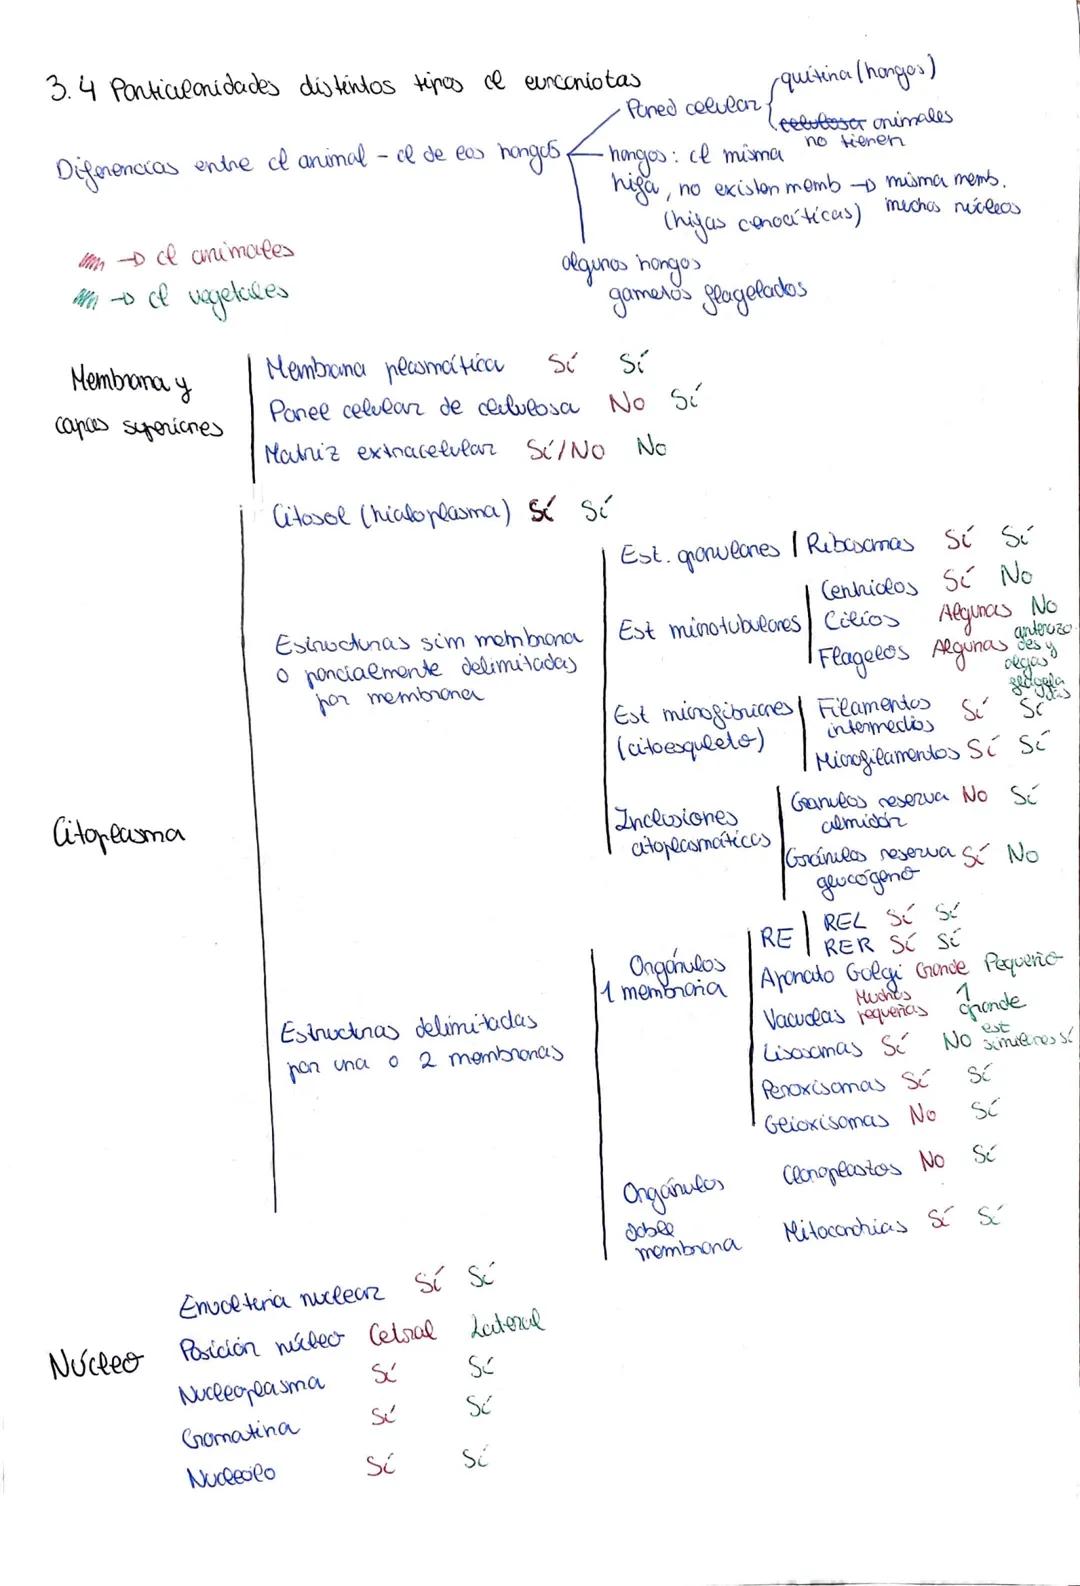 3.4 Particularidades distintos tipos cl eucariotas
Diferencias entre cl animal - cl de los hongos
Pared celular
quitina (hongos)
celulosa animales
no tienen
hongos: cl misma
hifa, no existen memb → misma memb.
(hifas cenocíticas) muchos núcleos
algunos hongos
gametos flagelados
→ cl animales
→ cl vegetales
Membrana y
capas superiores
Membrana plasmática Sí Sí
Pared celular de celulosa No Sí
Matriz extracelular Sí/No No
Citoplasma
Citosol (hialoplasma) Sí Sí
Estructuras sim membrana
o parcialmente delimitadas
por membrana
Est. granulares Ribosomas Sí Sí
Est microtubulares
Centriolos Sí No
Cilios Algunas No
Flagelos Algunas anterozo
des y
algas
Est microfibrilares
(citoesqueleto)
Filamentos
intermedios Sí Sí
Microfilamentos Sí Sí
Inclusiones
citoplasmáticas
Granulos reserva No Sí
almidón
Gránulos reserva Sí No
glucógeno
Estructuras delimitadas
por una o 2 membranas
Orgánulos
1 membrana
RE
REL Sí Sí
RER Sí Sí
Aparato Golgi Grande Pequeño
Vacuolas Muchas
pequeñas 1
grande
Lisosomas Sí No est
similares sí
Peroxisomas Sí Sí
Glioxisomas No Sí
Orgánulos
doble
membrana
Cloroplastos No Sí
Mitocondrias Sí Sí
Núcleo
Envolteria nuclear Sí Sí
Posición núcleo Cetral Lateral
Nucleoplasma Sí Sí
Cromatina Sí Sí
Nucleolo Sí Sí